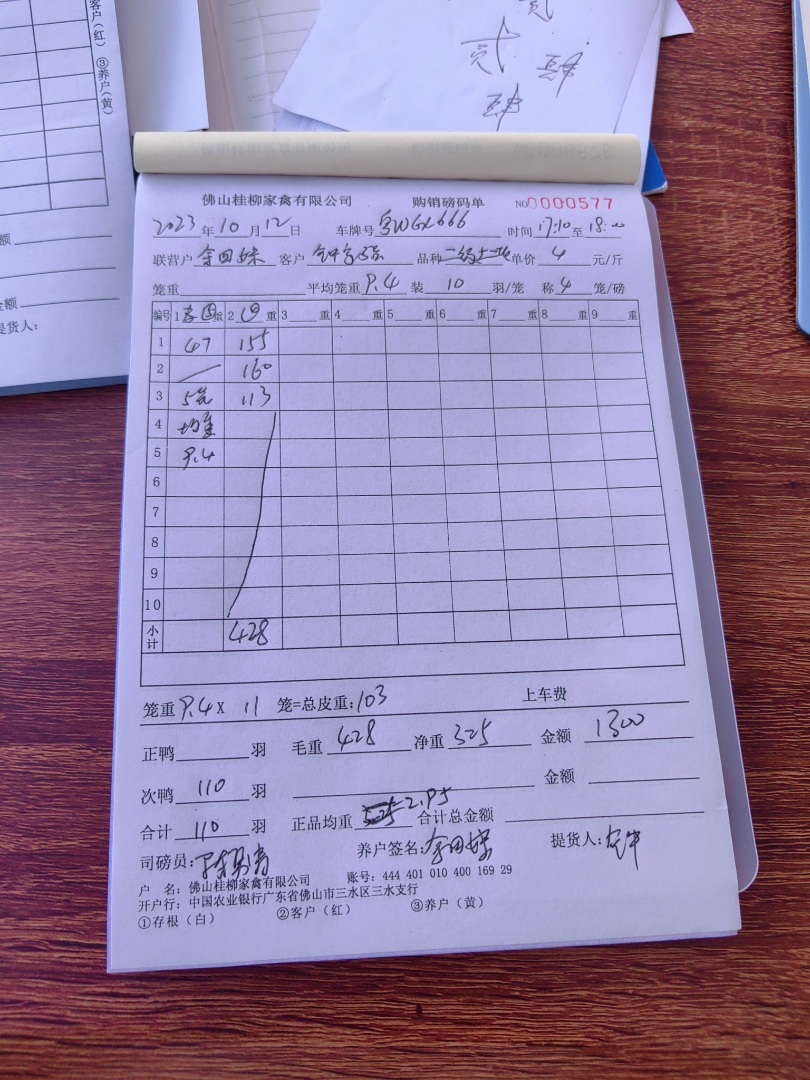 客户（红）
③养户（黄）
额
金额
提货人：
贰
肆
佛山桂柳家禽有限公司 购销磅码单 NO0000577
2023年10月12日 车牌号 粤WGL666 时间17:10至18:00
联营户 客户 品种 单价 4 元/斤
笼重 平均笼重 9.4 装 10 羽/笼 称 4 笼/磅
编号 1 重 2 重 3 重 4 重 5 重 6 重 7 重 8 重 9 重
1 47 155
2 160
3 5笼 113
4 均重
5 9.4
6
7
8
9
10
小计 428
笼重 9.4 X 11 笼=总皮重：103 上车费
正鸭 羽 毛重 428 净重 325 金额 1300
次鸭 110 羽 金额
合计 110 羽 正品均重 2.95 合计总金额
司磅员： 养户签名： 提货人：
户 名：佛山桂柳家禽有限公司 账号：444 401 010 400 169 29
开户行：中国农业银行广东省佛山市三水区三水支行
①存根（白） ②客户（红） ③养户（黄）